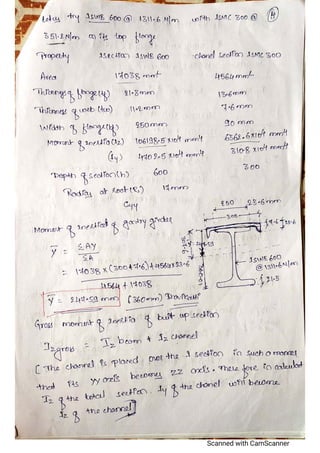 Let us try ISWB 600 @ 1311.6 N/m with ISMC 300 @ (4)
351.2 N/m as its top flange
Property I section ISWB 600 chanel section ISMC 300
Area 17038 mm² 4564 mm²
Thickness of flange (tf) 21.3 mm 13.6 mm
Thickness of web (tw) 11.2 mm 7.6 mm
Width of flange (bf) 250 mm 90 mm
Moment of inertia (Iz) 106198.5 x10⁴ mm⁴ 6362.6 x10⁴ mm⁴
(Iy) 4702.5 x10⁴ mm⁴ 310.8 x10⁴ mm⁴
Depth of section (h) 600 300
Radius at root (R1) 18 mm
Cyy 23.6 mm
Moment of inertia of gantry girder
250
300
7.6
ISWB 600
@ 1311.6 N/m
21.3
ȳ = ΣAY
ΣA
= 17038 x (300+7.6) + 4564 x 23.6
4564 + 17038
ȳ = 247.59 mm (360 mm)
Gross moment of inertia of built up section
Iz gross = Iz beam + Iz channel
[The channel is placed over the I section in such a manner
that its yy axis becomes zz axis. Therefore in calculat
Iz of the total section. Iy of the chanel will become
Iz of the channel]
Scanned with CamScanner